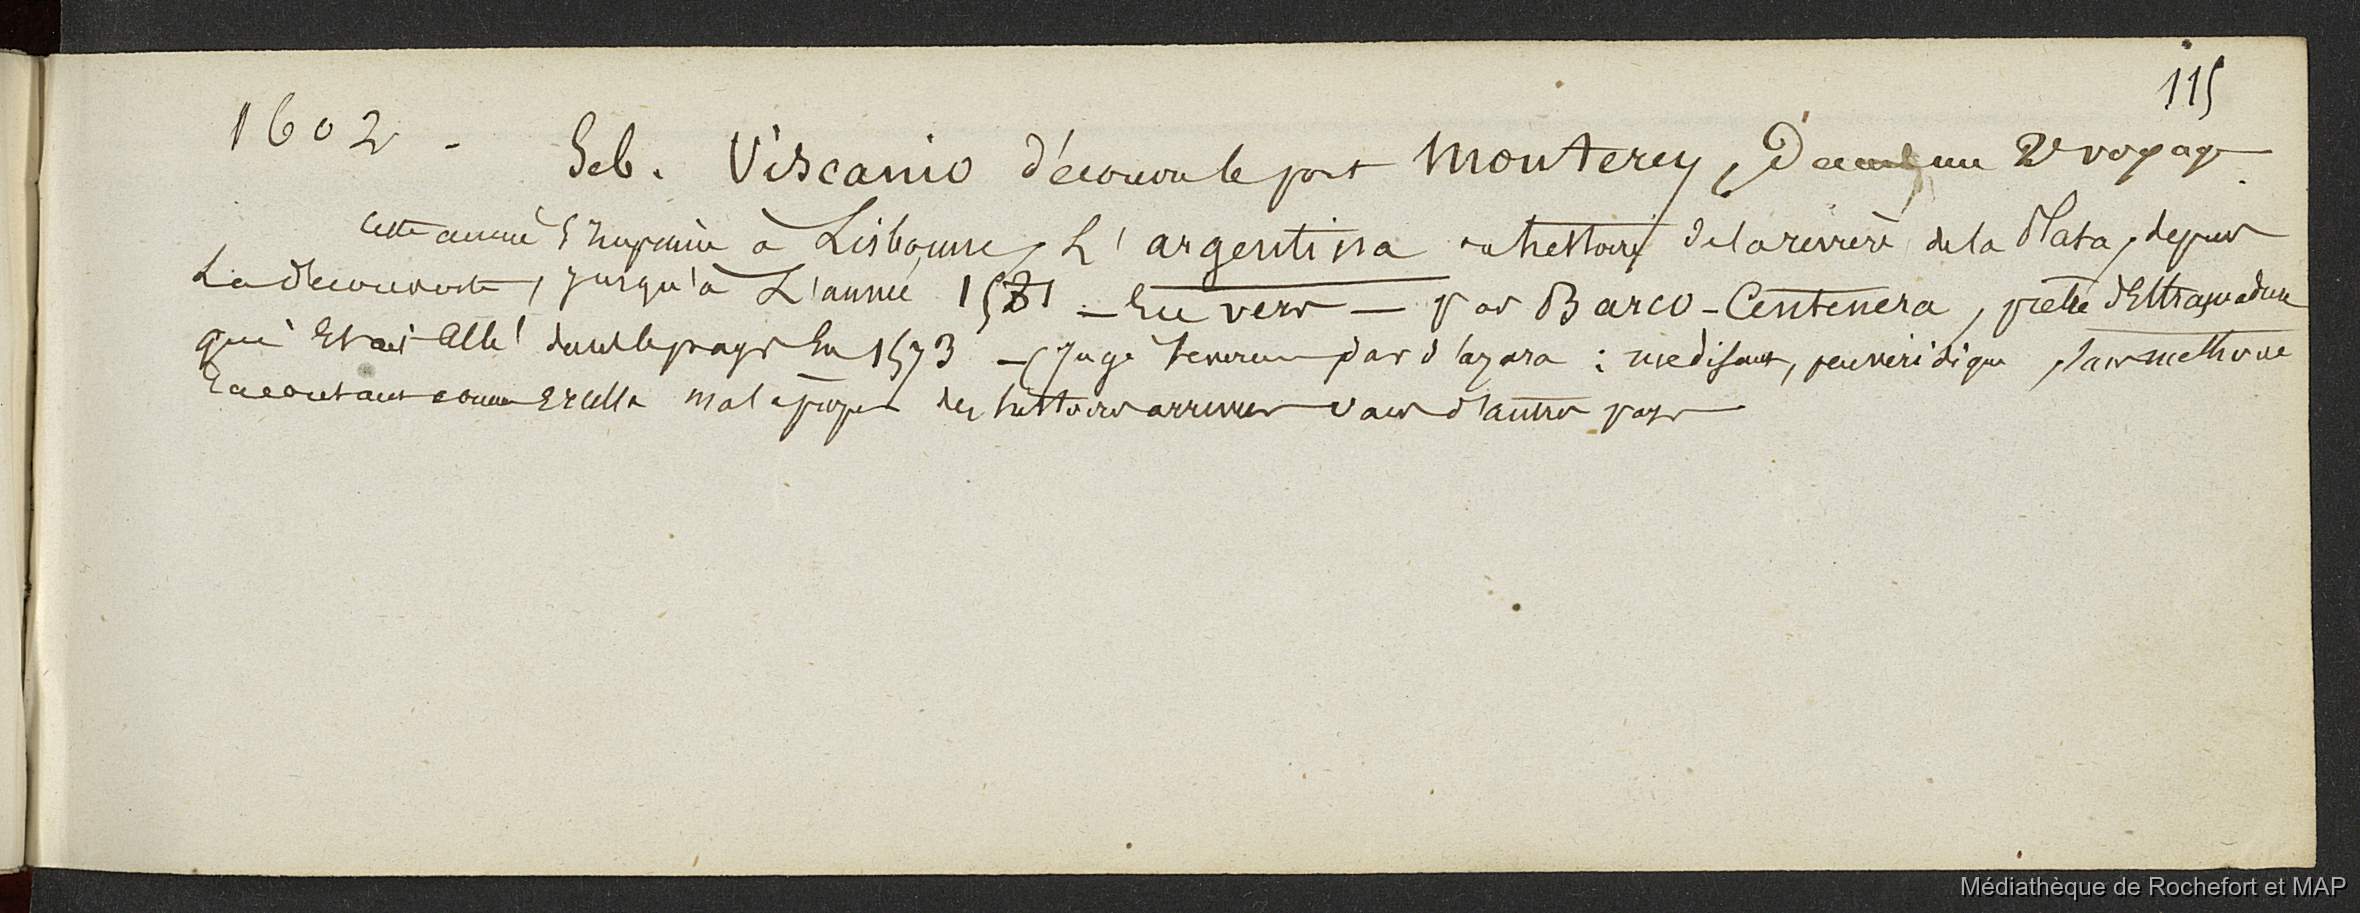 115
1602 - Seb. Viscanio découvre le port Monterey, Dans un 2e voyage.
cette année s'imprime à Lisbonne, L'argentina ou histoire de la rivière de la Plata, depuis
La découverte, jusqu'à L'année 1581 — En vers — par Barco-Centenera, prêtre d'Estramadure
qui Etait Allé dans le pays En 1573 — (Jugé par d'azara : medisant, peu veridique, sans methode
Racontant comme mal à propos des histoires arrivées dans d'autres pays
Médiathèque de Rochefort et MAP